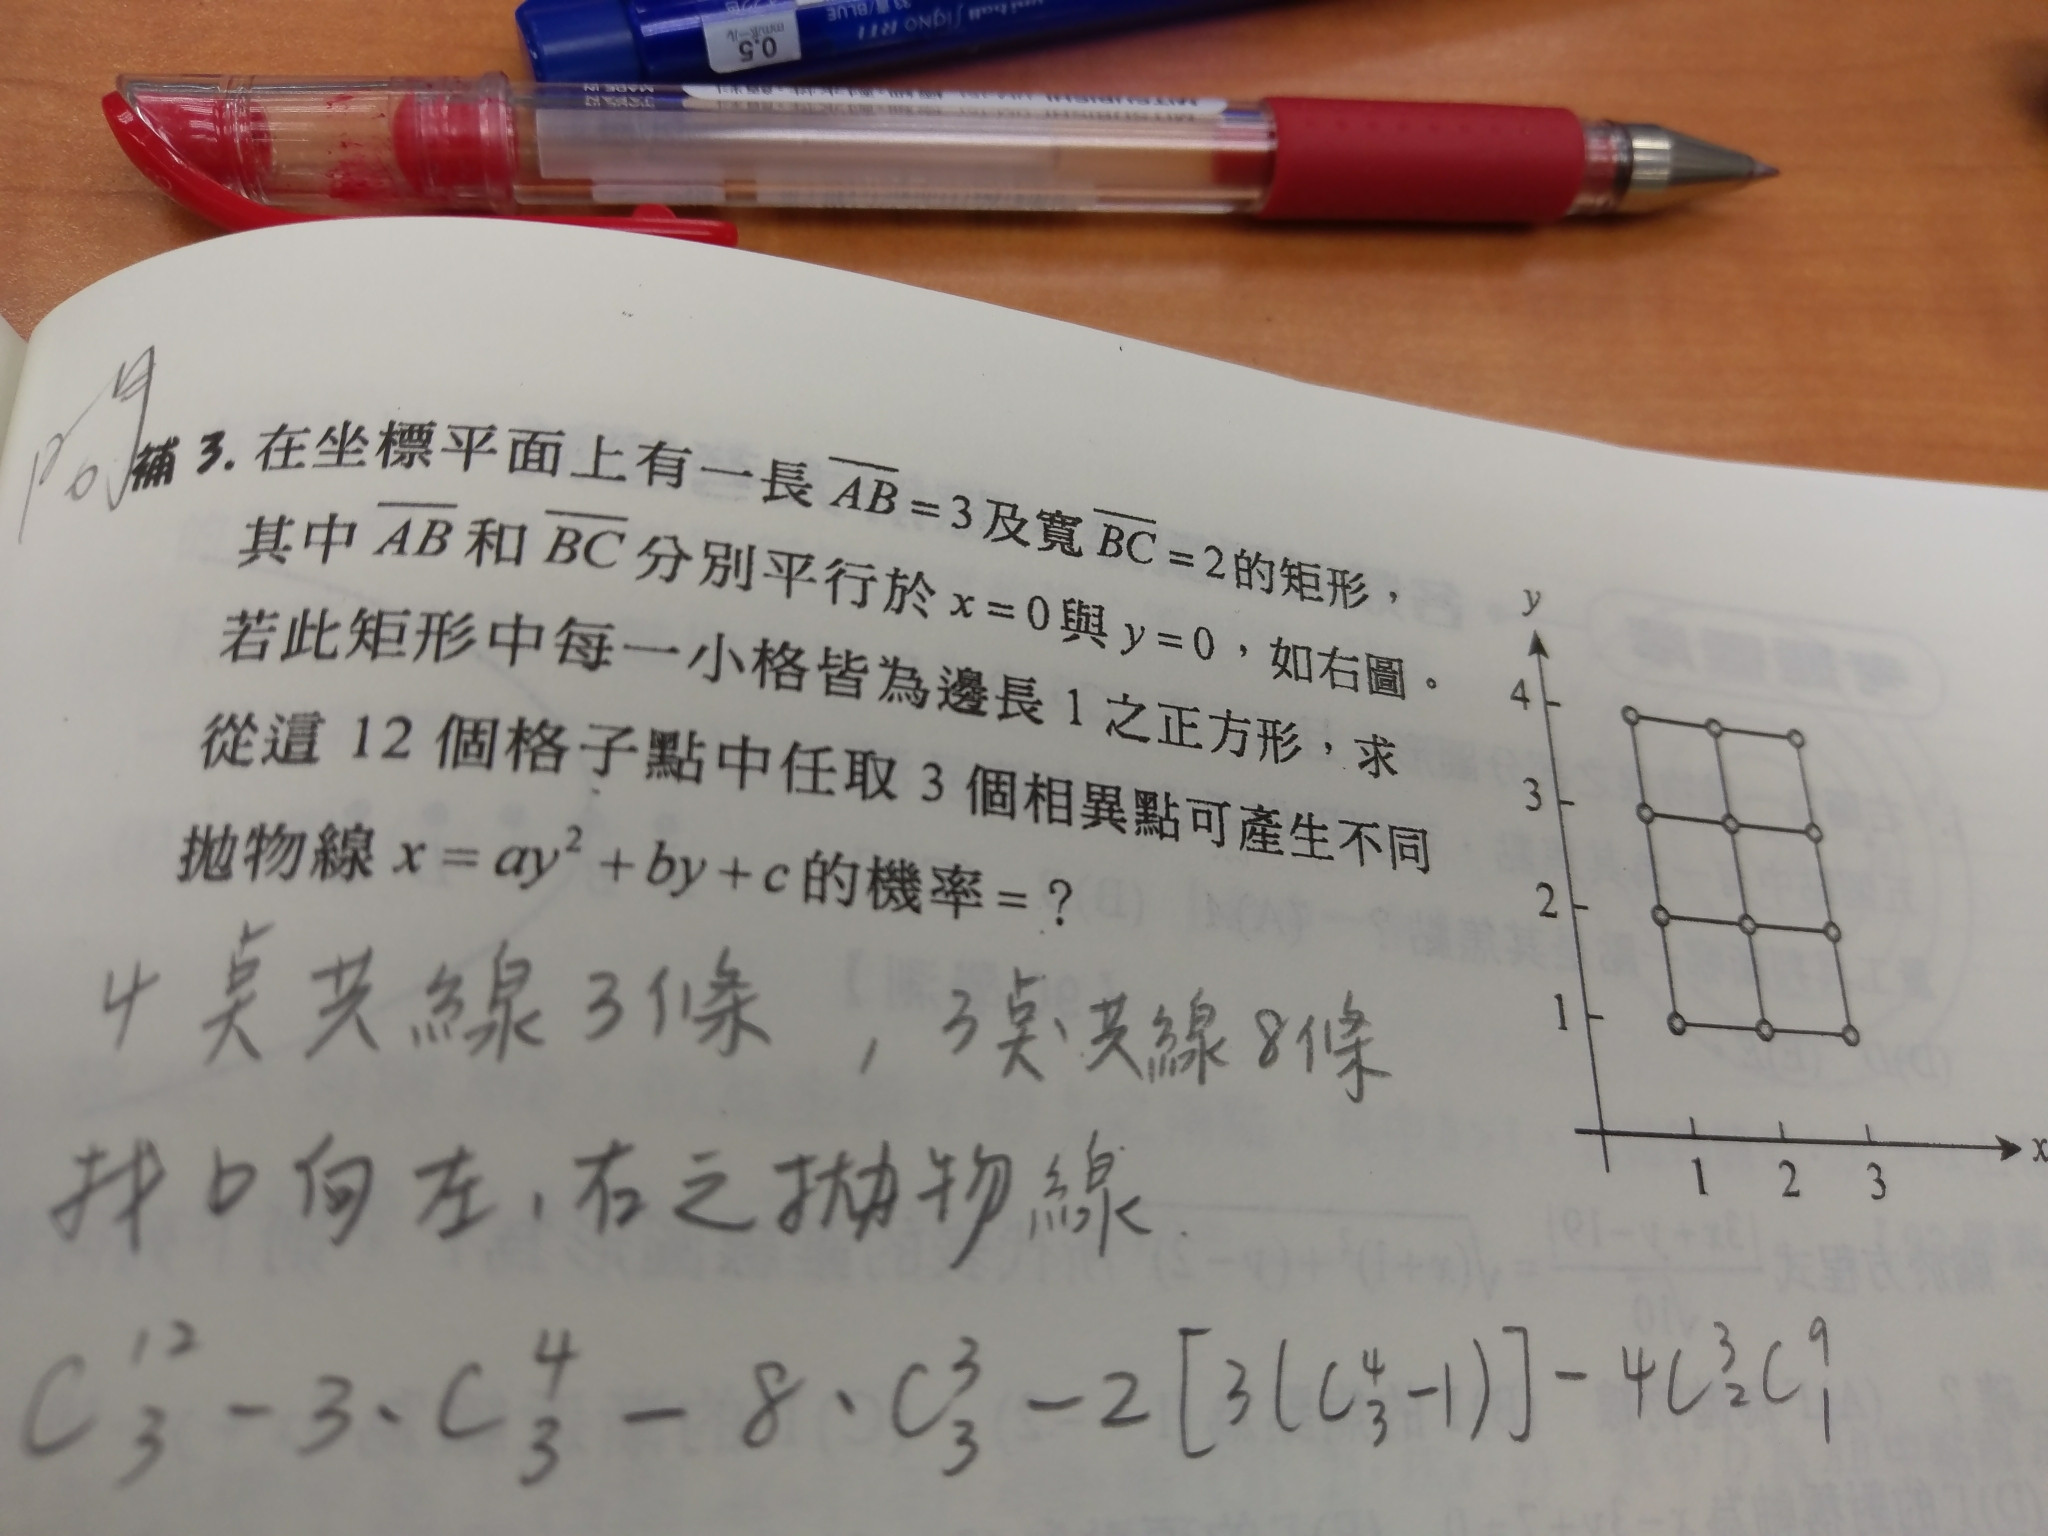 0.5
補 3. 在坐標平面上有一長 AB = 3 及寬 BC = 2 的矩形，
其中 AB 和 BC 分別平行於 x = 0 與 y = 0，如右圖。
若此矩形中每一小格皆為邊長 1 之正方形，求
從這 12 個格子點中任取 3 個相異點可產生不同
拋物線 x = ay² + by + c 的機率 = ?
y
4
3
2
1
1 2 3
x
4 點共線 3 條，3 點共線 8 條
找口向左、右之拋物線
C¹²₃ - 3·C⁴₃ - 8·C³₃ - 2[3(C⁴₃-1)] - 4C³₂C⁹₁